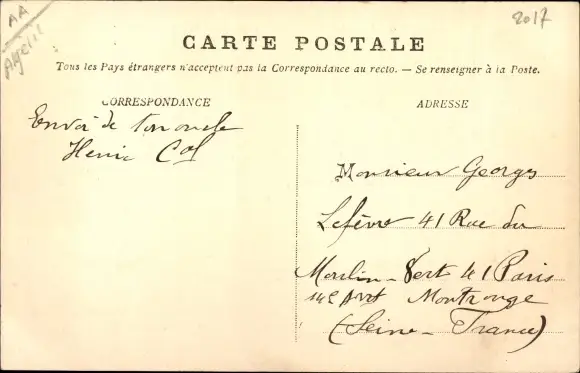 AA
Agenl
2017
CARTE POSTALE
Tous les Pays étrangers n'acceptent pas la Correspondance au recto. — Se renseigner à la Poste.
CORRESPONDANCE
ADRESSE
Envoi de ton oncle
Henri Col
Monsieur Georges
Lefèvre 41 Rue du
Moulin-Vert 41 Paris
14e Arrt Montrouge
(Seine - France)